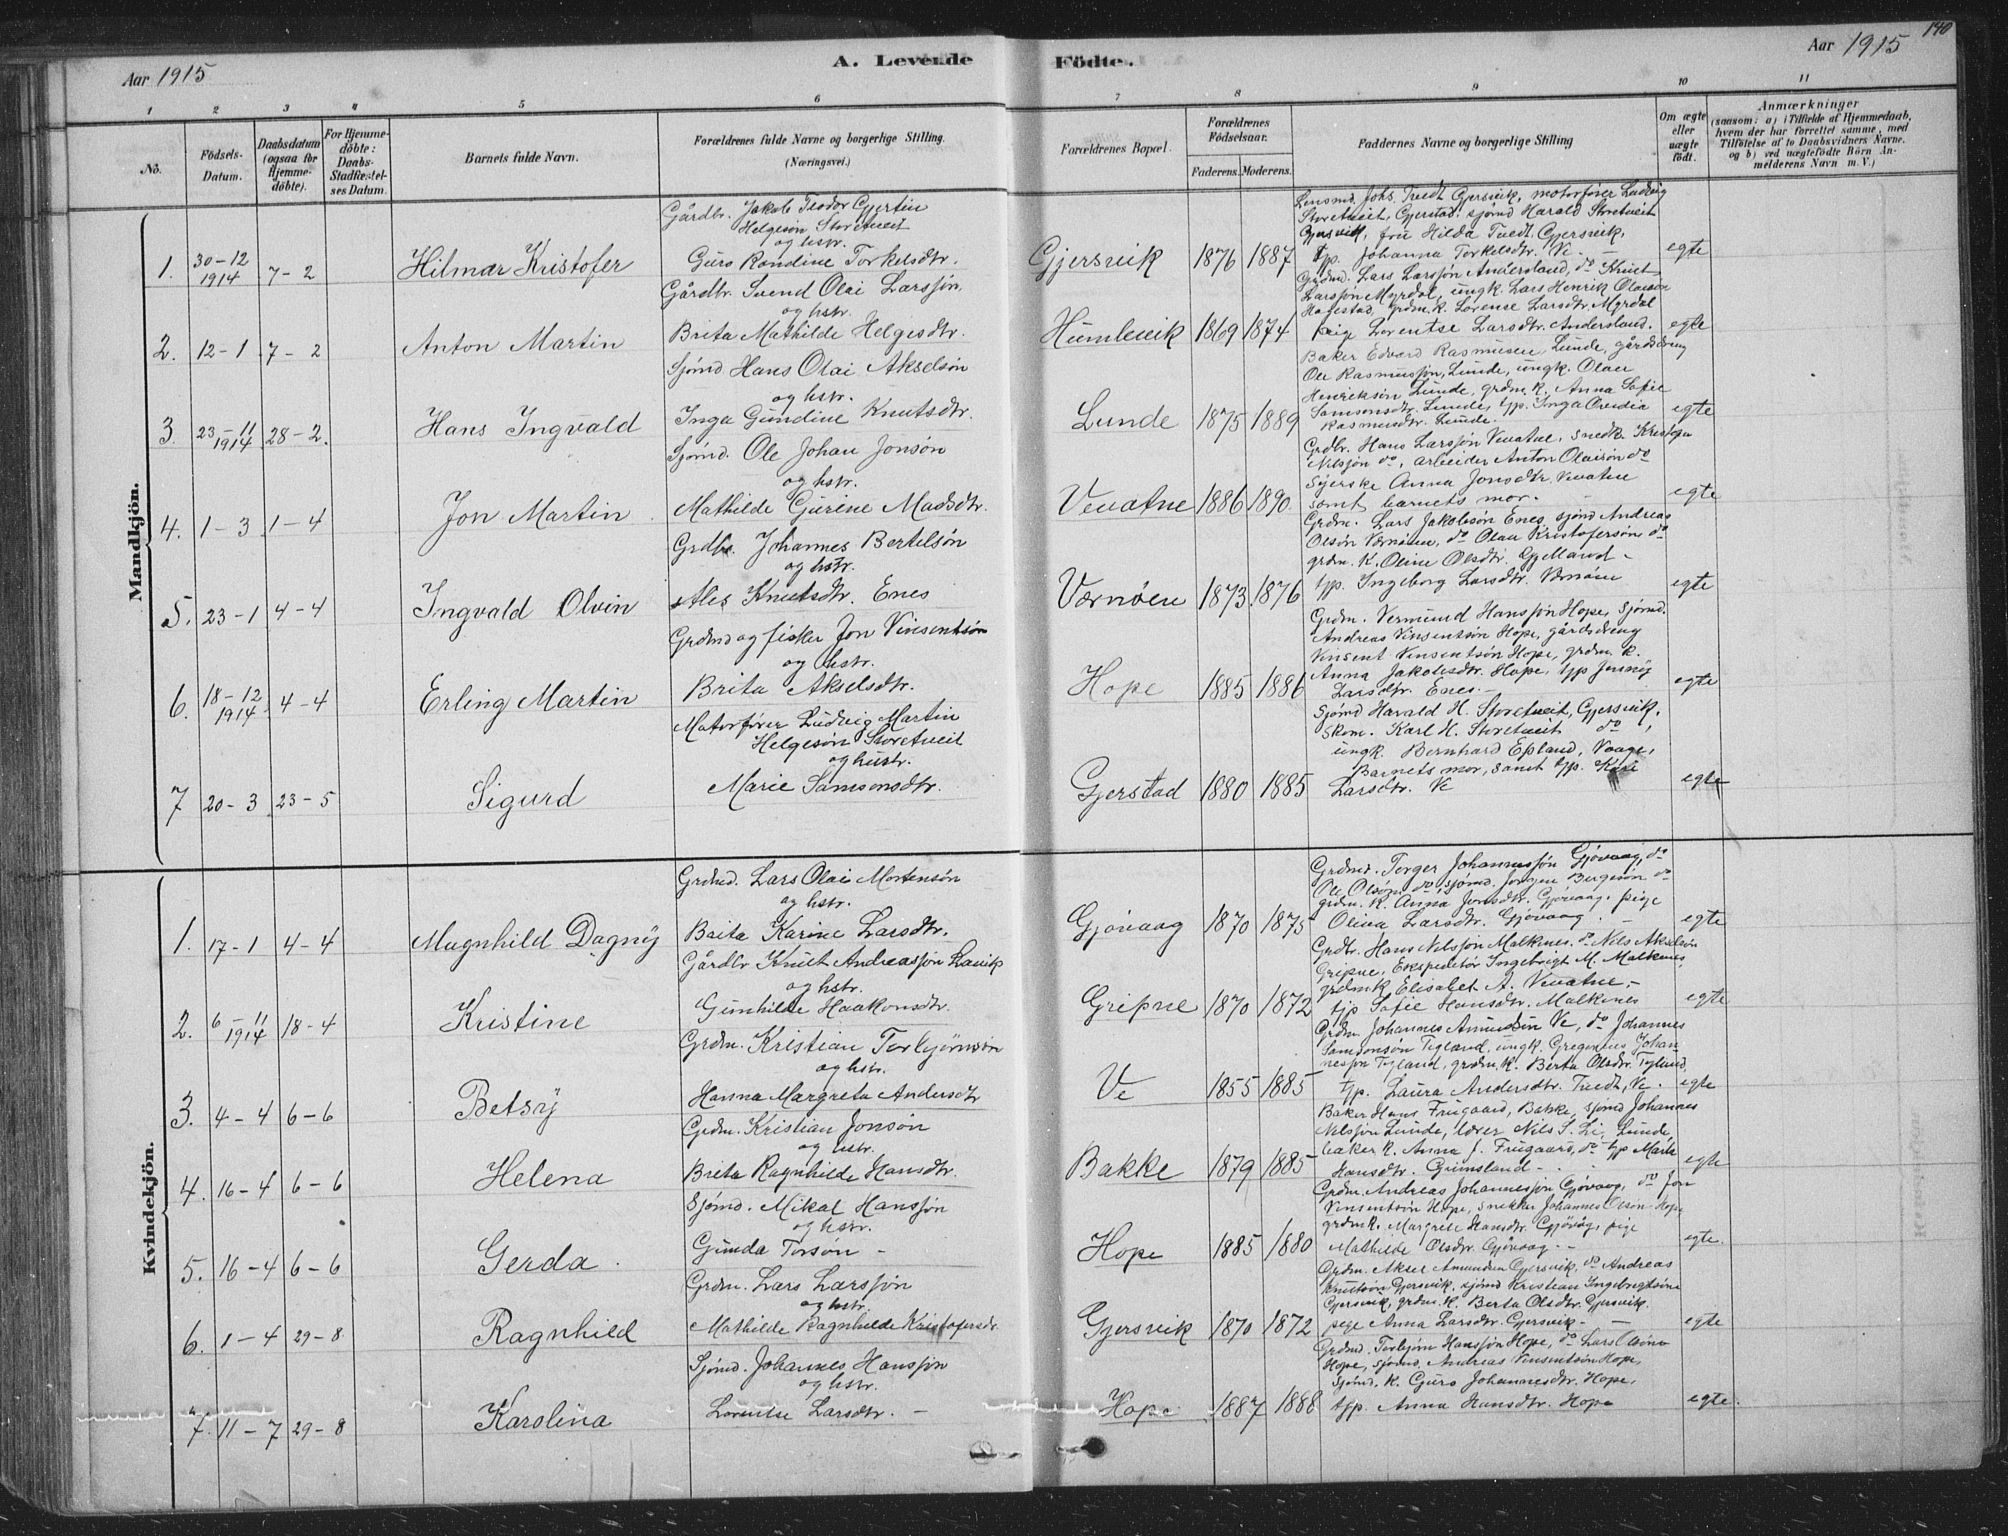 140
Aar 1915
A. Levende
Födte.
Aar 1915
1
2
3
4
5
6
7
8
9
10
11
No.
Födsels-
Datum.
Daabsdatum
(ogsaa for
Hjemme-
döbte).
For Hjemme-
döbte:
Daabs-
Stadfæstel-
ses Datum.
Barnets fulde Navn.
Forældrenes fulde Navne og borgerlige Stilling.
(Næringsvei.)
Forældrenes Bopæl.
Forældrenes
Födselsaar.
Faderens.
Moderens.
Faddernes Navne og borgerlige Stilling
Om ægte
eller
uægte
födt.
Anmærkninger
(saasom: a) i Tilfælde af Hjemmedaab,
hvem der har forrettet samme, med
Tilföielse af to Daabsvidners Navne.
og b) ved uægtefödte Börn An-
melderens Navn m. V.)
Mandkjön.
1. 30-12 1914 7-2 Hilmar Kristofer
Gårdbr. Jakob Teodor Gjertin
Helgesön Storetveit
og hstr.
Guro Randine Torkelsdtr.
Gjersvik 1876 1887
Lensmd. Johs. Tvedt Gjersvik, motorförer Ludvig
Storetveit, Gjerstad, sjömd Harald Storetveit
Gjersvik, fru Hilda Tvedt Gjersvik,
tjp. Johanna Torkelsdtr. Ve -
egte
2. 12-1 7-2 Anton Martin
Gårdbr. Svend Olai Larssön
og hstr.
Brita Mathilde Helgesdtr.
Humlevik 1869 1874
Grdmd. Lars Larssön Andersland, do Knut
Larssön Myrdal, ungk. Lars Henrik Olaisön
Hagestad, grdm.k. Lorense Larsdtr. Myrdal
pig Lorentse Larsdtr. Andersland.
egte
3. 23-11 1914 28-2. Hans Ingvald
Sjömd Hans Olai Akselsön
og hstr.
Inga Gundine Knutsdtr.
Lunde 1875 1889
Baker Edvard Rasmussen, Lunde, gårdsdreng
Ole Rasmussön, Lunde, ungk. Olau
Henriksön Lunde, grdm.k. Anna Sofie
Samsonsdtr. Lunde, tjp. Inga Ovidia
Rasmusdtr. Lunde.
egte
4. 1-3 1-4 Jon Martin
Sjömd. Ole Johan Jonsön
og hstr.
Mathilde Gurine Madsdtr.
Vevatne 1886 1890
Grdbr. Hans Larssön Vevatne, snedk. Kristofer
Nilssön do, arbeider Anton Olaisön do
Syerske Anna Jonsdtr. Vevatne
samt barnets mor. -
egte
5. 23-1 4-4 Ingvald Olvin
Grdbr. Johannes Bertelsön
og hstr.
Ales Knutsdtr. Enes
Værnöen 1873 1876
Grdm. Lars Jakobsön Enes, sjömd Andreas
Olsön Værnöen, do Olau Kristofersön do
grdm. K. Oline Olsdtr. Gjemårnd -
tjp. Ingeborg Larsdtr. Værnöen
egte
6. 18-12 1914 4-4 Erling Martin
Grdmd og fisker Jon Vinsentsön
og hstr.
Brita Akselsdtr.
Hope 1885 1886
Grdm. Vermund Hanssön Hope, Sjömd.
Andreas Vinsentsön Hope, gårdsdreng
Vinsent Vinsentsön Hope, grdm. k.
Anna Jakobsdtr. Hope, tjp Jenny
Larsdtr. Enes. -
egte
7 20-3 23-5 Sigurd
Motorförer Ludvig Martin
Helgesön Storetveit
og hustr.
Marie Samsonsdtr.
Gjerstad 1880 1885
Sjömd Harald H. Storetveit, Gjersvik,
Skom. Karl H. Storetveit do,
ungk. Bernhard Epland, Vaage,
Barnets mor, samt tjp. Kari
Larsdtr. Ve
egte
Kvindekjön.
1. 17-1 4-4 Magnhild Dagny
Grdmd. Lars Olai Mortensön
og hstr.
Brita Karine Larsdtr.
Gjövaag 1870 1875
Grdmd. Torger Johannessön Gjövaag, do
Ole Olsön do, sjömd. Jörgen Bergesön do
grdm. K. Anna Jonsdtr. Gjövaag, pige
Olina Larsdtr. Gjövaag. -
egte
2. 6-11 1914 18-4 Kristine
Gårdbr Knut Andreassön Lavik
og hstr.
Gunhilde Haakonsdtr.
Gripne 1870 1872
Grdbr. Hans Nilssön Malkenes, do Nils Akselsön
Gripne, Ekspeditör Ingebrigt M. Malkenes
grdmk Elisabet A. Vevatne -
tjp Sofie Hansdtr. Malkenes
egte
3. 4-4 6-6 Betsy
Grdm. Kristian Torbjörnsön
og hstr.
Hanna Margreta Andersdtr
Ve 1855 1885
Grdm. Johannes Amundsön Ve, do Johannes
Samsonsön Tyland, ungk. Gregorius Johan-
nessön Tyland, grdm.k. Berta Olsdtr. Tyland,
tjp. Laura Andersdtr. Tvedt, Ve.
egte
4. 16-4 6-6 Helena
Grdm. Kristian Jonsön
og hstr.
Brita Ragnhilde Hansdtr.
Bakke 1879 1885
Baker Hans Frugaard, Bakke, sjömd Johannes
Nilssön Lunde, lærer Nils S. Li, Lunde
baker k. Anna J. Frugaard, do tjp Marta
Hansdtr. Grimsland -
egte
5. 16-4 6-6 Gerda.
Sjömd. Mikal Hanssön
og hstr.
Gunda Torsön -
Hope 1885 1880
Grdm. Andreas Johannessön Gjövaag, do Jon
Vinsentsön Hope, snekker Johannes Olsön Hope
grdmk. Margrete Hansdtr. Gjövåg, pige
Mathilde Olsdtr. Gjövaag -
egte.
6. 1-4 29-8 Ragnhild
Grdm. Lars Larssön
og hstr.
Mathilde Ragnhilde Kristofersdr.
Gjersvik 1870 1872
Grdm. Aksel Amundsen Gjersvik, do Andreas
Knutsön Gjersvik, sjömd Kristian Ingebrigtsön
Gjersvik, grdm. K. Berta Olsdtr. Gjersvik.
pige Anna Larsdtr. Gjersvik -
egte
7. 11-7 29-8 Karolina
Sjömd. Johannes Hanssön
og hstr.
Lorentse Larsdtr. -
Hope 1887 1888
Grdmd. Torbjörn Hanssön Hope, do Lars Olsön
Hope, sjömd. Andreas Vinsentsön Hope,
sjömd. K. Guro Johannesdtr. Hope,
tjp. Anna Hansdtr. Hope
egte.